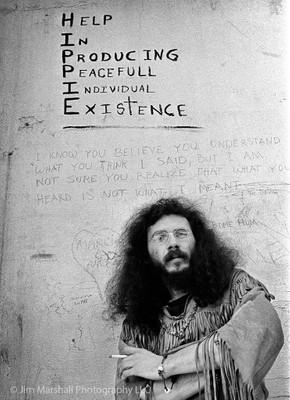 HELP
IN
PRODUCING
PEACEFULL
INDIVIDUAL
EXISTENCE
I KNOW YOU BELIEVE YOU UNDERSTAND
WHAT YOU THINK I SAID, BUT I AM
NOT SURE YOU REALIZE THAT WHAT YOU
HEARD IS NOT WHAT I MEANT
© Jim Marshall Photography LLC